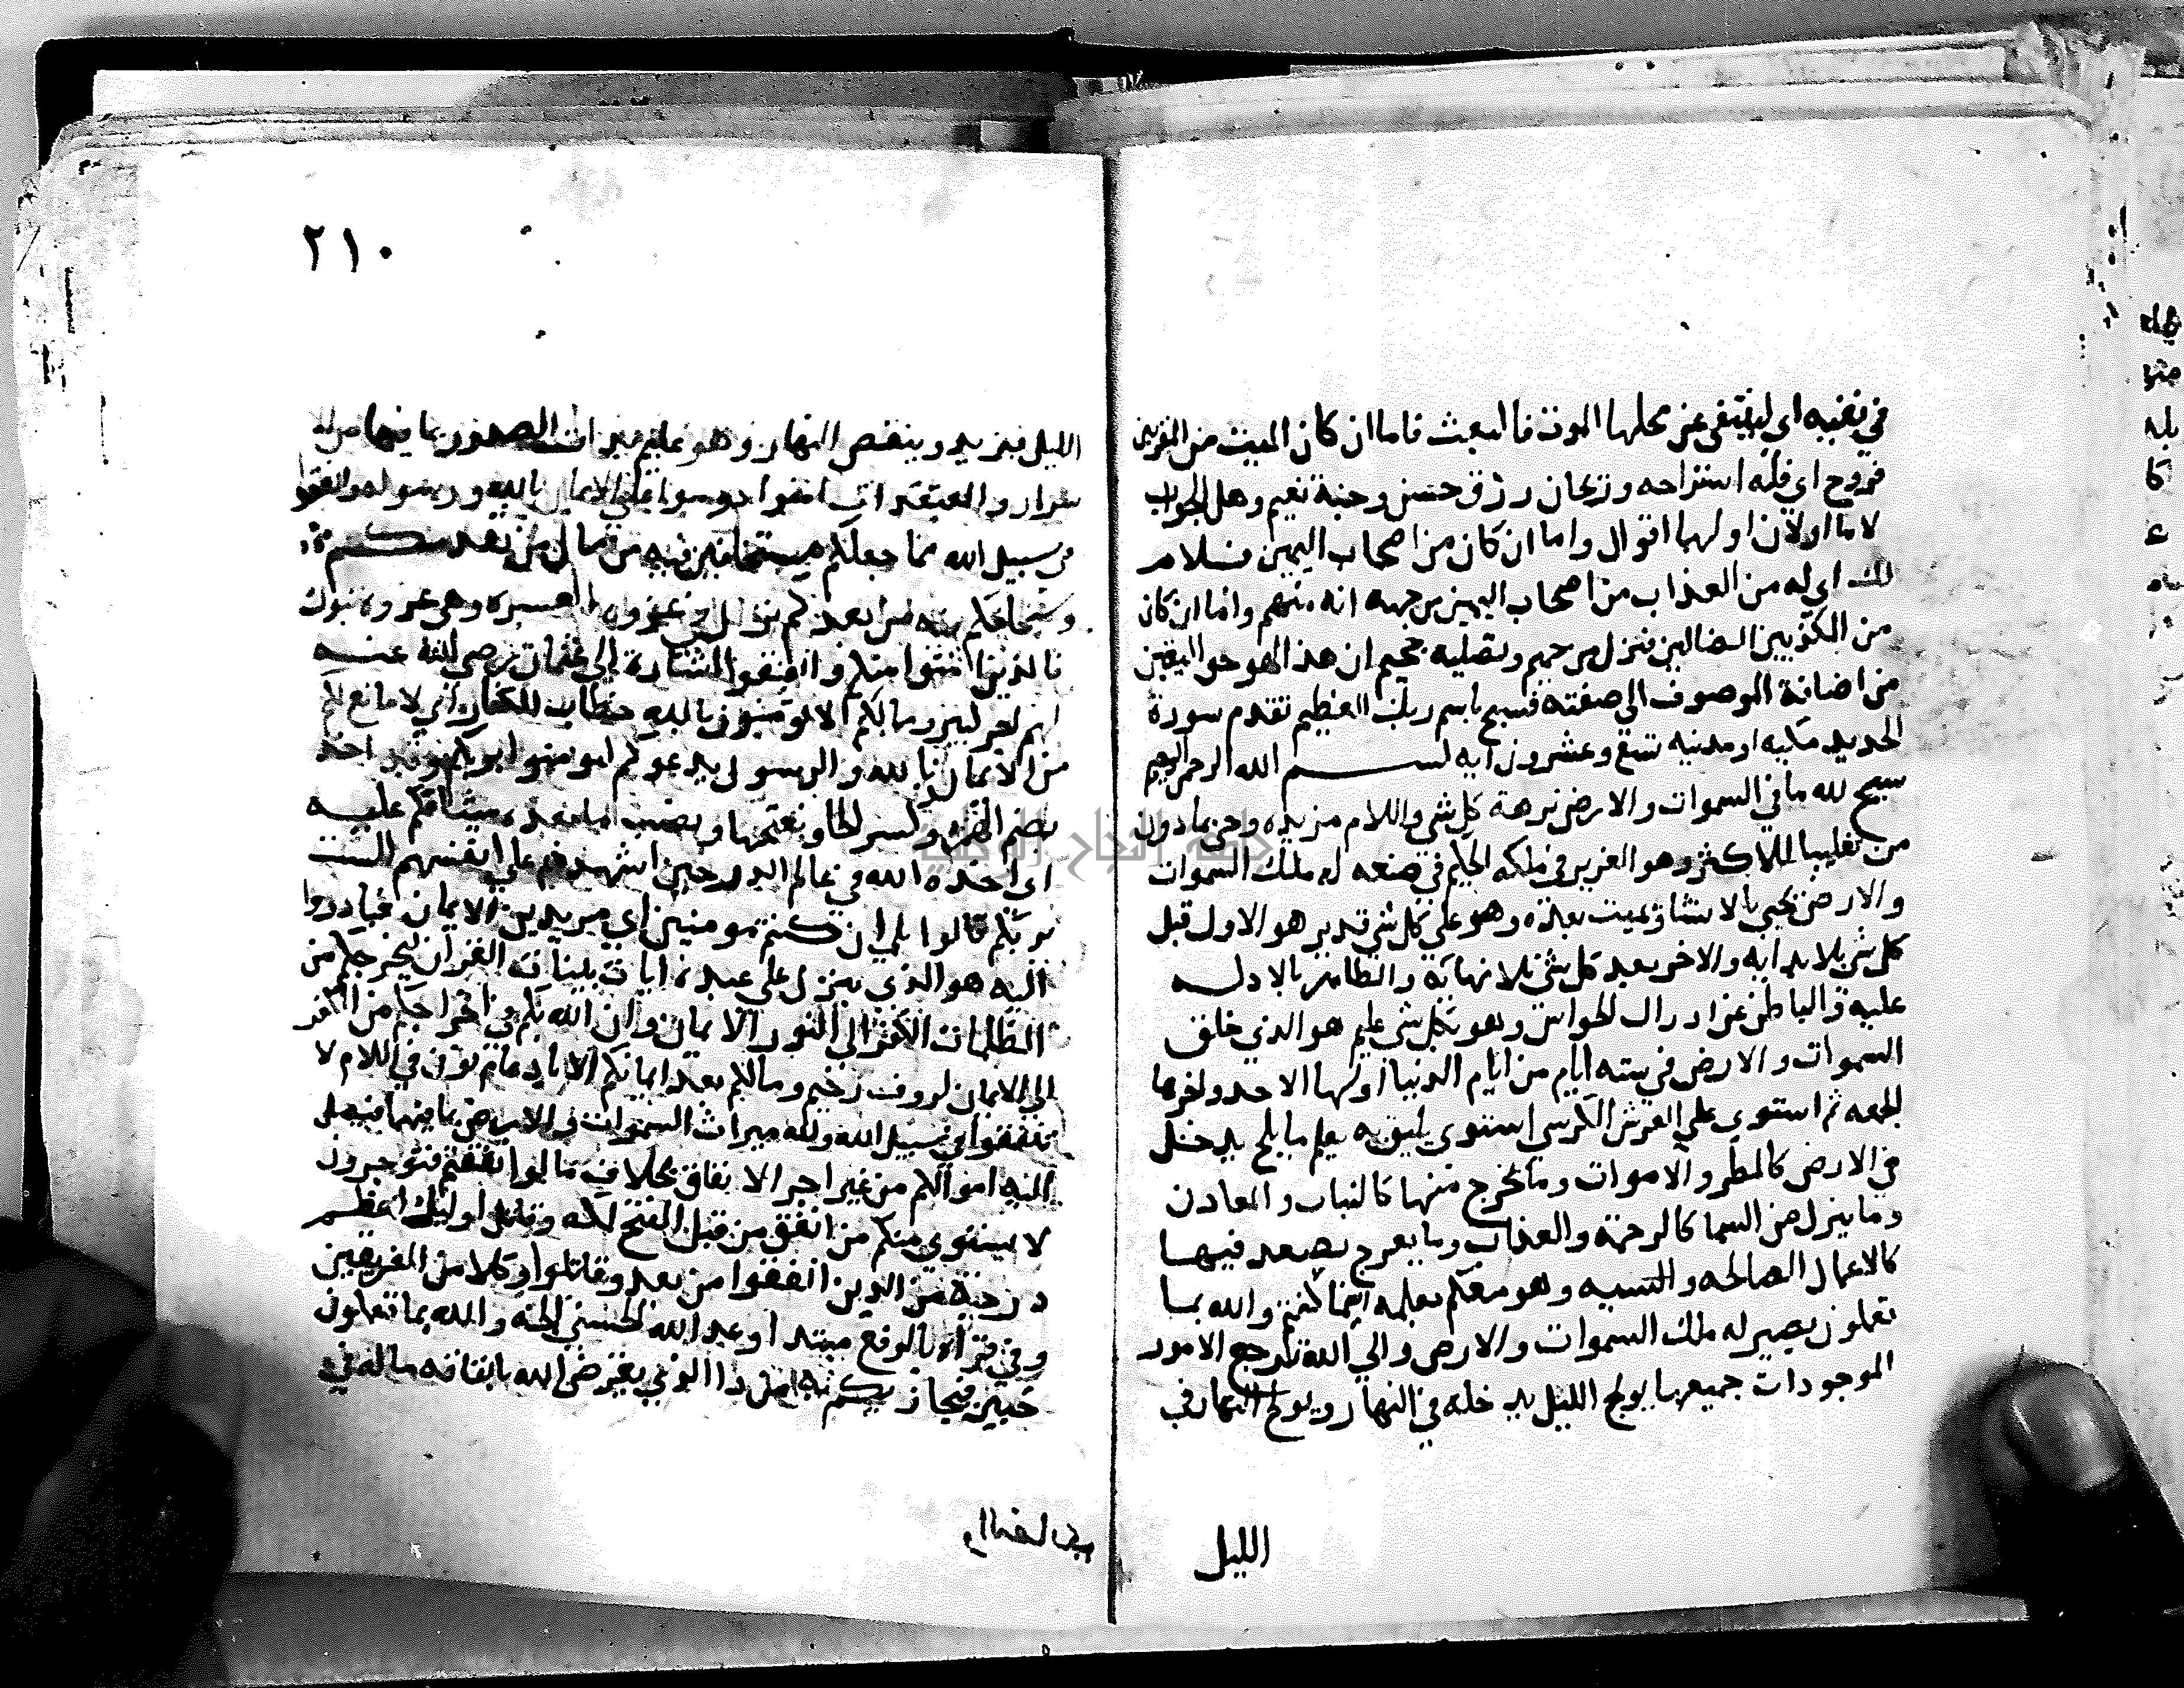 في نفيه اي لينتفي عن محلها الموت فالبعث فاما ان كان الميت من المقربين
فروح اي فله استراحه وريحان رزق حسن وجنة نعيم وهل الجواب
لاما اولان اولهما اقوال واما ان كان من اصحاب اليمين فسلام
لك اي له من العذاب من اصحاب اليمين من جهه انه منهم واما ان كان
من المكذبين الضالين فنزل من حميم وتصليه جحيم ان هذا لهو حق اليقين
من اضافة الموصوف الي صفته فسبح باسم ربك العظيم تقدم سورة
الحديد مكيه او مدنيه تسع وعشرون ايه بسم الله الرحمن الرحيم
سبح لله ما في السموات والارض نزهه كل شي واللام مزيده وجي بما دون
من تغليبا للاكثر وهو العزيز في ملكه الحكيم في صنعه له ملك السموات
والارض يحيي بالانشا ويميت بعده وهو علي كل شي قدير هو الاول قبل
كل شي بلا بدايه والاخر بعد كل شي بلا نهايه والظاهر بالادله
عليه والباطن عن ادراك الحواس وهو بكل شي عليم هو الذي خلق
السموات والارض في سته ايام من ايام الدنيا اولها الاحد واخرها
الجمعه ثم استوي علي العرش الكرسي استوي يليق به يعلم ما يلج يدخل
في الارض كالمطر والاموات وما يخرج منها كالنبات والمعادن
وما ينزل من السما كالرحمة والعذاب وما يعرج يصعد فيها
كالاعمال الصالحه والسيه وهو معكم بعلمه اينما كنتم والله بما
تعملون بصير له ملك السموات والارض والي الله ترجع الامور
الموجودات جميعها يولج الليل يدخله في النهار ويولج النهار في
الليل
٢١٠
الليل فيزيد وينقص النهار وهو عليم بذات الصدور بما فيها من الا
سرار والمعتقدات امنوا دوموا علي الايمان بالله ورسوله وانفقوا
في سبيل الله مما جعلكم مستخلفين فيه من مال من تقدمكم
وسيخلفكم فيه من بعدكم نزل في غزوه العسره وهي غزوه تبوك
فالذين امنوا منكم وانفقوا اشارة الي عثمان رضي الله عنه
لهم اجر كبير وما لكم لا تومنون بالله خطاب للكفار اي لا مانع لكم
من الايمان بالله والرسول يدعوكم لتومنوا بربكم وقد اخذ
بضم الهمزه وكسر الخا وبفتحها وبنصب ما بعده ميثاقكم عليه
اي اخذه الله في عالم الذر حين اشهدهم علي انفسهم الست
بربكم قالوا بلي ان كنتم مومنين اي مريدين الايمان فبادروا
اليه هو الذي ينزل علي عبده ايات بينات القران ليخرجكم من
الظلمات الكفر الي النور الايمان وان الله بكم في اخراجكم من الكفر
الي الايمان لروف رحيم وما لكم بعد ايمانكم الا بادغام نون في اللام لا
تنفقوا في سبيل الله ولله ميراث السموات والارض بما فيها فيصل
اليه اموالكم من غير اجر الانفاق بخلاف ما لوا انفقتم فتوجرون
لا يستوي منكم من انفق من قبل الفتح لمكه وقاتل اوليك اعظم
درجة من الذين انفقوا من بعد وقاتلوا وكلا من الفريقين
وفي قراه بالرفع مبتدا وعد الله الحسني الجنه والله بما تعملون
خبير فيجازيكم به من ذا الذي يقرض الله بانفاقه ماله في